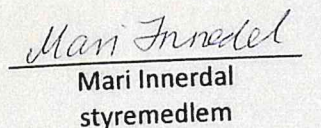 Mari Innerdal
Mari Innerdal
styremedlem